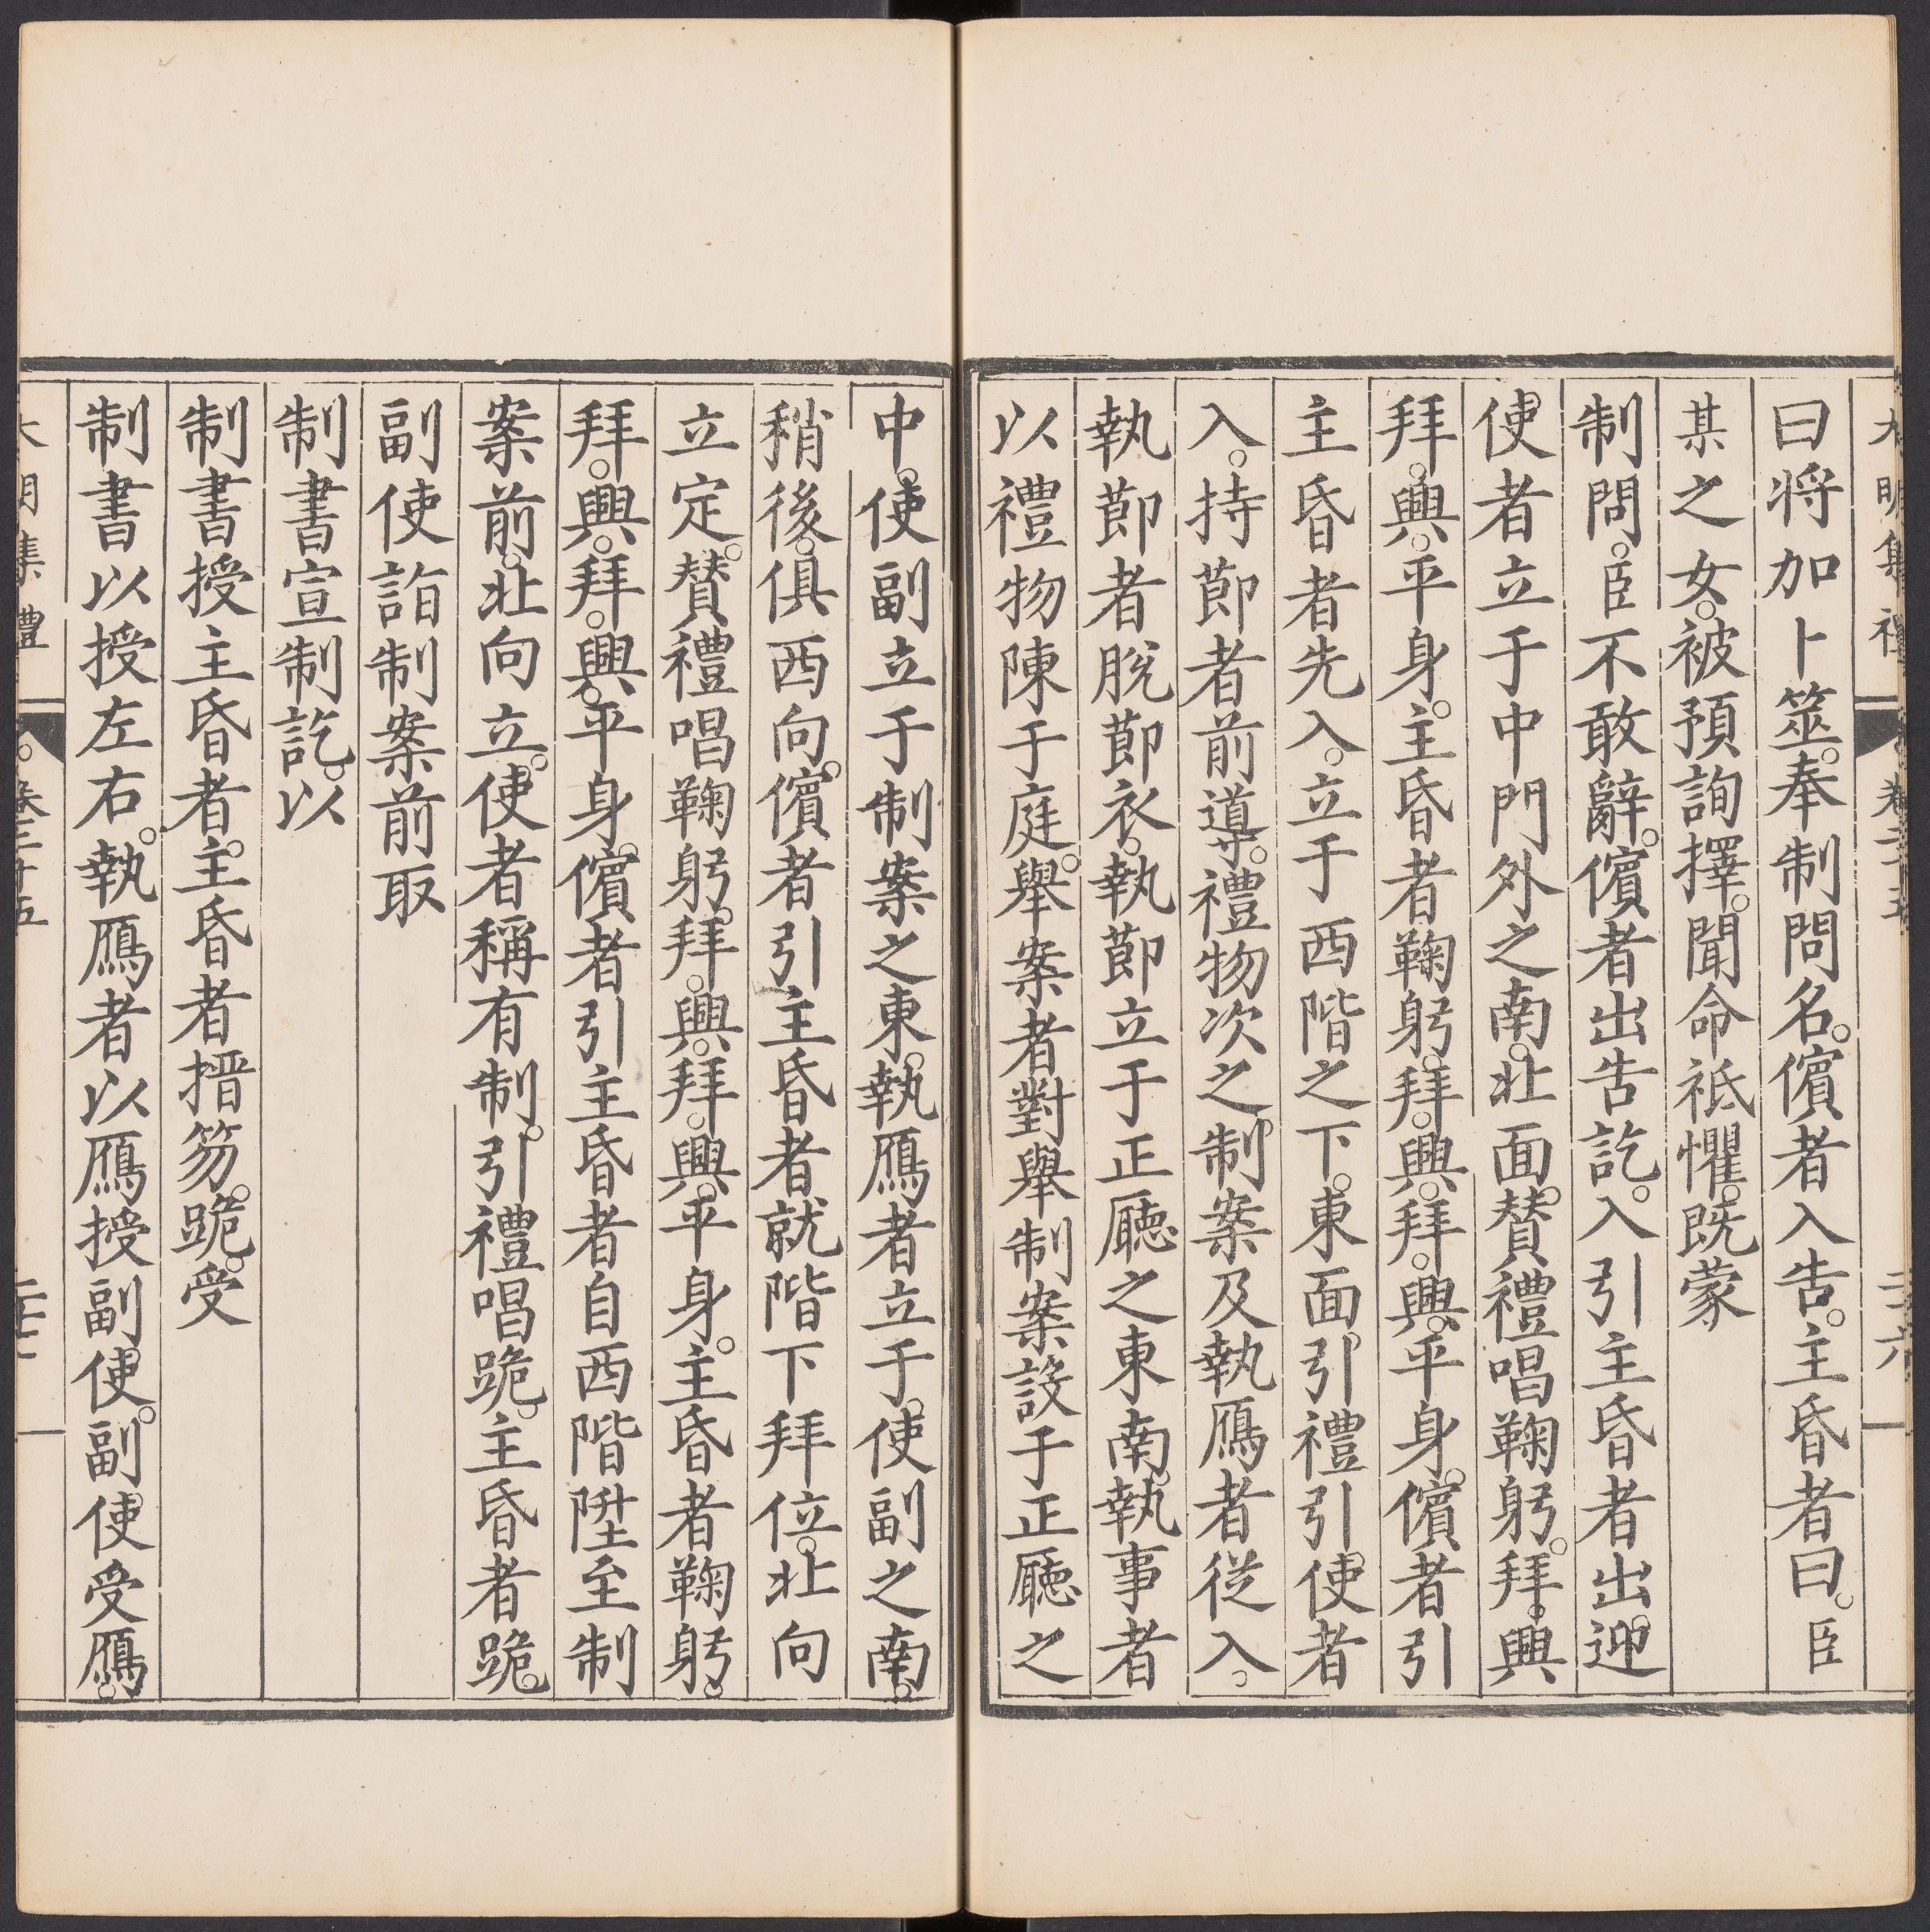 大明集禮 卷二十五 二十六
曰将加卜筮。奉制問名。儐者入告。主昏者曰。臣
某之女。被預詢擇。聞命祗懼。既蒙
制問。臣不敢辭。儐者出告訖。入引主昏者出迎
使者立于中門外之南。北面。賛禮唱鞠躬。拜。興
拜。興。平身。主昏者鞠躬。拜。興。拜。興。平身。儐者引
主昏者先入。立于西階之下。東面。引禮引使者
入。持節者前導。禮物次之。制案及執鴈者從入。
執節者脫節衣。執節立于正廳之東南。執事者
以禮物陳于庭。舉案者對舉制案設于正廳之
中。使副立于制案之東。執鴈者立于使副之南。
稍後。俱西向。儐者引主昏者就階下拜位。北向
立定。賛禮唱鞠躬。拜。興。拜。興。平身。主昏者鞠躬。
拜。興。拜。興。平身。儐者引主昏者自西階陞至制
案前。北向立。使者稱有制。引禮唱跪。主昏者跪。
副使詣制案前取
制書宣制訖。以
制書授主昏者。主昏者搢笏。跪。受
制書以授左右。執鴈者以鴈授副使。副使受鴈。
大明集禮 卷二十五 二十七